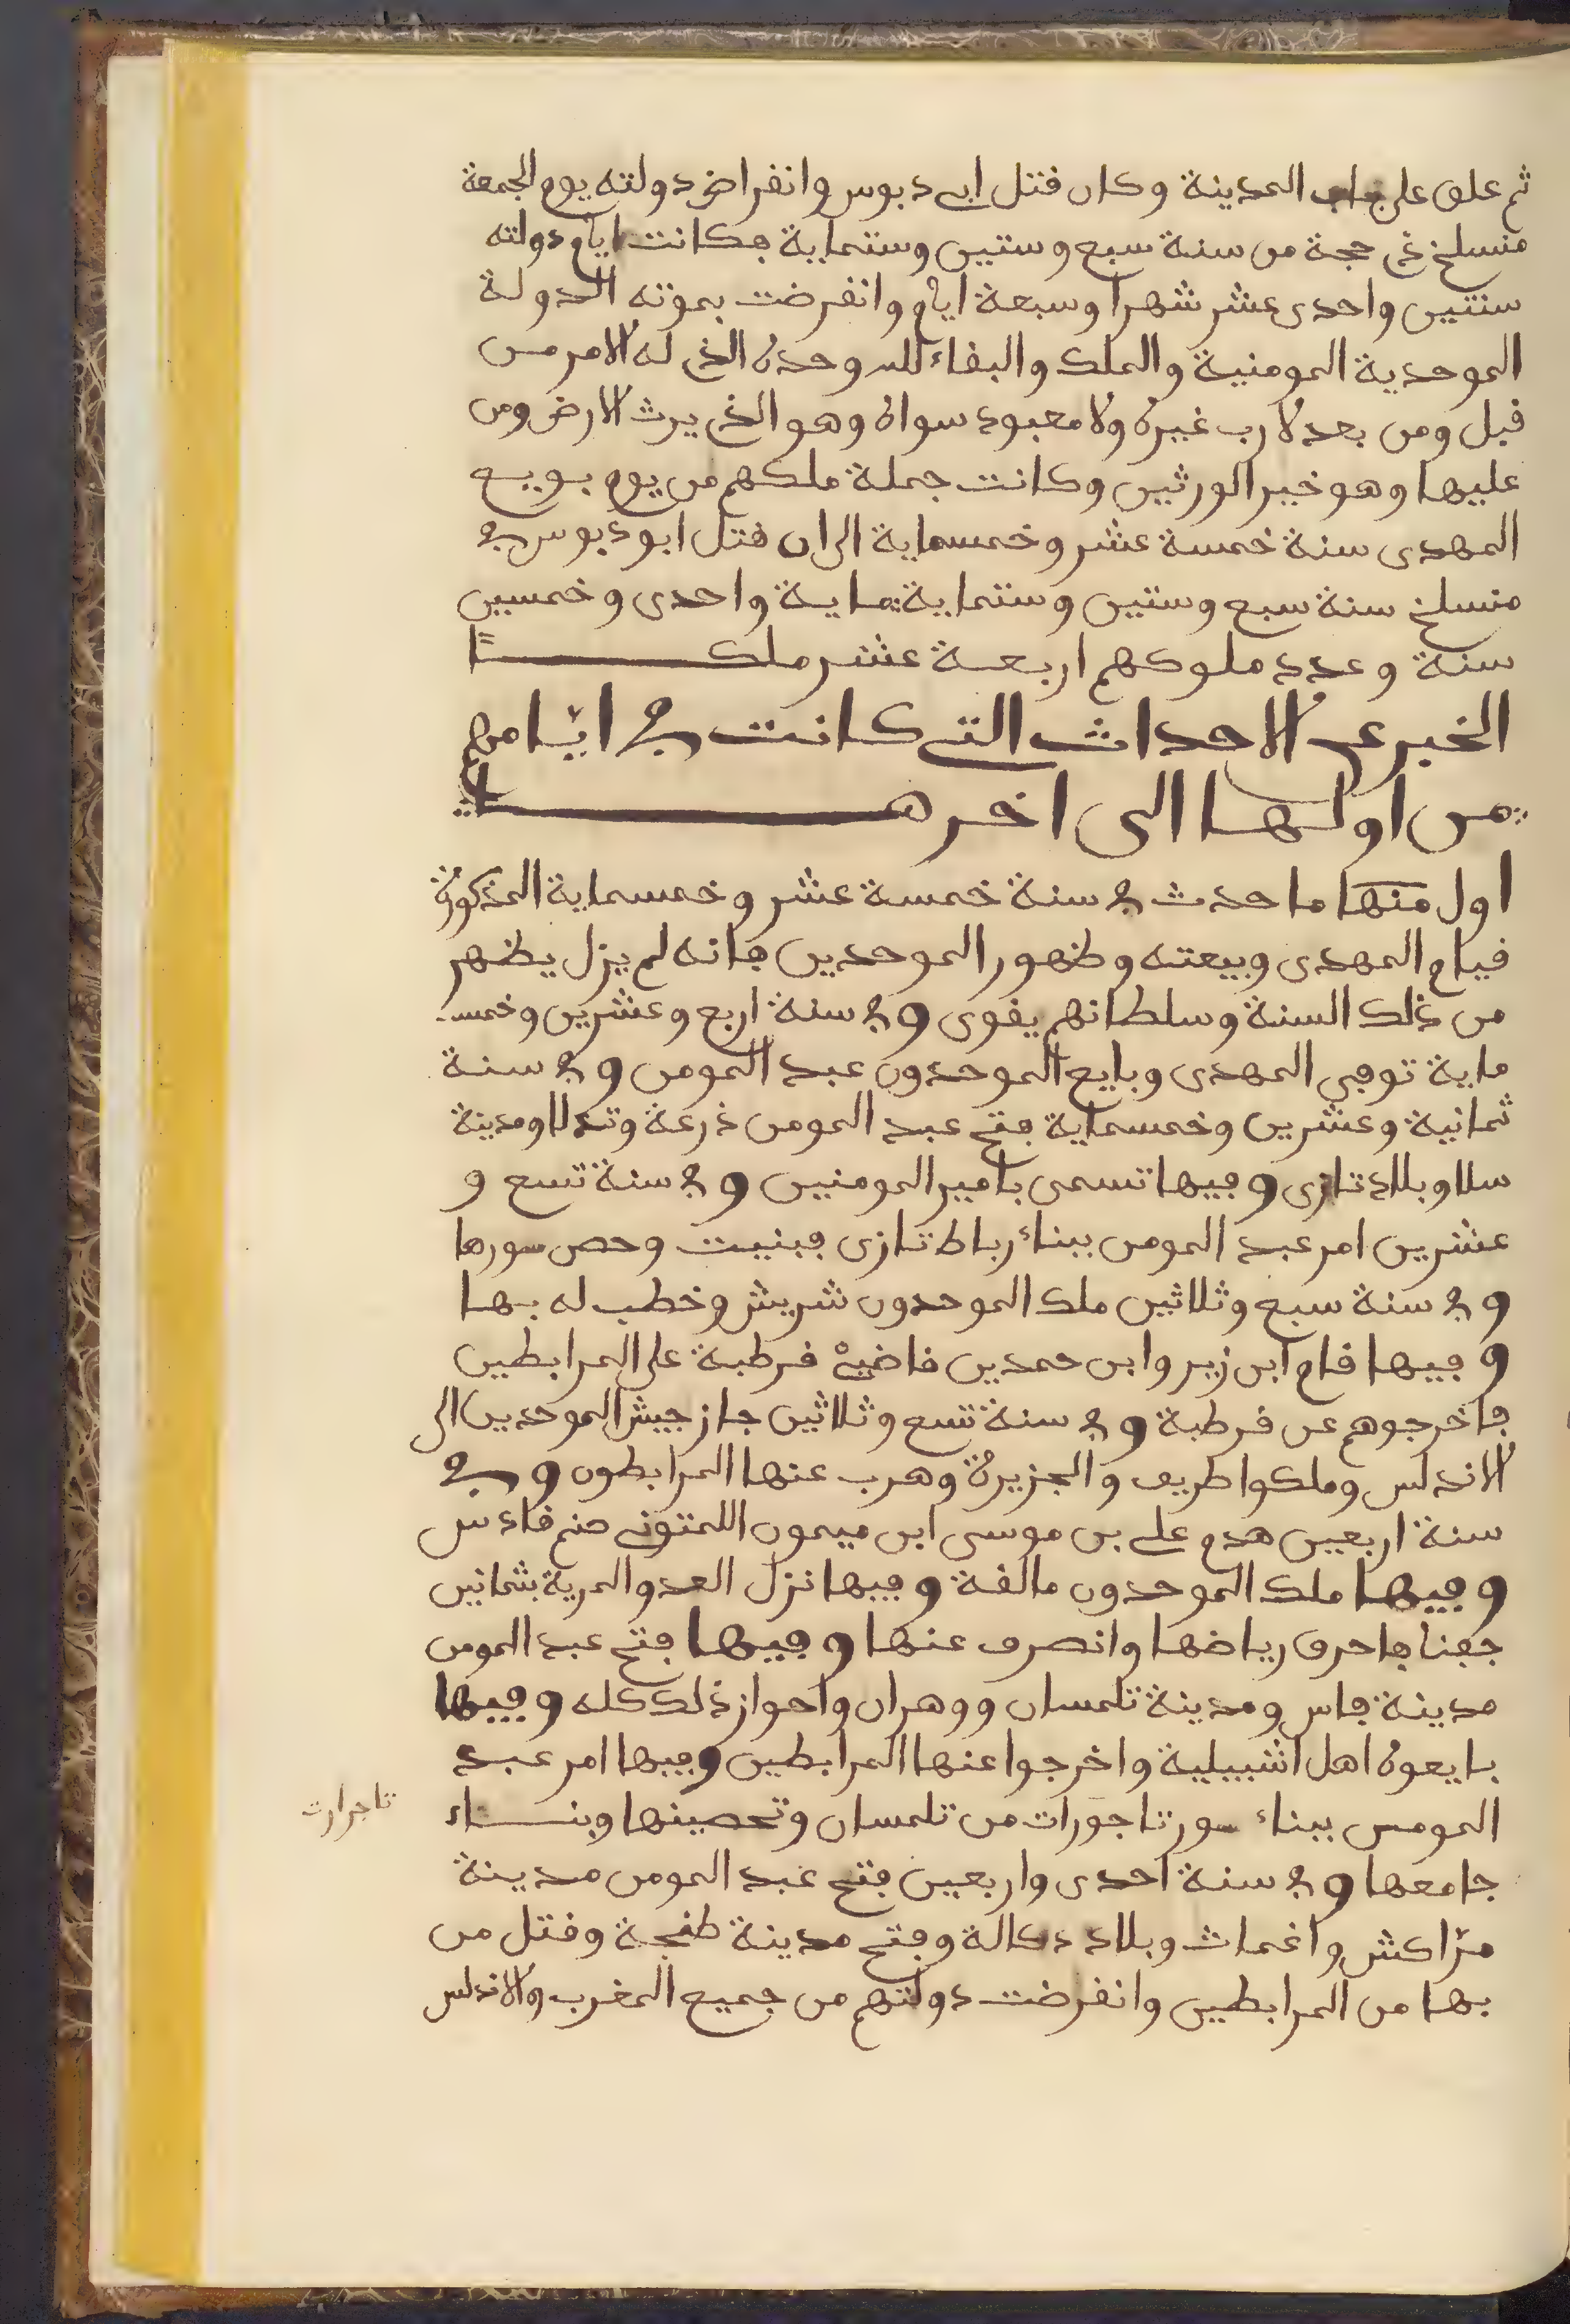 ثم علق على باب المدينة وكان قتل ابى دبوس وانقراض دولته يوم الجمعة
منسلخ ذى حجة من سنة سبع وستين وستماية فكانت ايام دولته
سنتين واحدى عشر شهرا وسبعة ايام وانقرضت بموته الدولة
الموحدية المومنية والملك والبقاء لله وحده الذى له الامر من
قبل ومن بعد لا رب غيره ولا معبود سواه وهو الذى يرث الارض ومن
عليها وهو خير الورثين وكانت جملة ملكهم من يوم بويع
المهدى سنة خمسة عشر وخمسماية الى ان قتل ابو دبوس فى
منسلخ سنة سبع وستين وستماية ماية واحدى وخمسين
سنة وعدد ملوكهم اربعة عشر ملكًا
الخبر عن الاحداث التى كانت فى ايّامهم
من اولها الى اخرها
اول منها ما حدث فى سنة خمسة عشر وخمسماية المذكورة
قيام المهدى وبيعته وظهور الموحدين فانه لم يزل يظهر
من ذلك السنة وسلطانهم يقوى وفى سنة اربع وعشرين وخمس
ماية توفى المهدى وبايع الموحدون عبد المومن وفى سنة
ثمانية وعشرين وخمسماية فتح عبد المومن ذرعة وتدلا ومدينة
سلا وبلاد تازى وفيها تسمى بامير المومنين وفى سنة تسع و
عشرين امر عبد المومن ببناء رباط تازى فبنيت وحص سورها
وفى سنة سبع وثلاثين ملك الموحدون شريش وخطب له بها
وفيها قام ابن زير وابن حمدين قاضى قرطبة على المرابطين
فاخرجوهم عن قرطبة وفى سنة تسع وثلاثين جاز جيش الموحدين الى
الاندلس وملكوا طريف والجزيرة وهرب عنها المرابطون وفى
سنة اربعين هدم على بن موسى ابن ميمون اللمتونى صنم قادس
وفيها ملك الموحدون مالقة وفيها نزل العدو المرية بثمانين
جفنا فاحرق رياضها وانصرف عنها وفيها فتح عبد المومن
مدينة فاس ومدينة تلمسان ووهران واحواز ذلك كله وفيها
بايعوه اهل اشبيلية واخرجوا عنها المرابطين وفيها امر عبد
المومن ببناء سور تاجورات من تلمسان وتحصينها وبناء
تاجرارت
جامعها وفى سنة احدى واربعين فتح عبد المومن مدينة
مرّاكش واغمات وبلاد دكالة وفتح مدينة طنجة وقتل من
بها من المرابطين وانقرضت دولتهم من جميع المغرب والاندلس